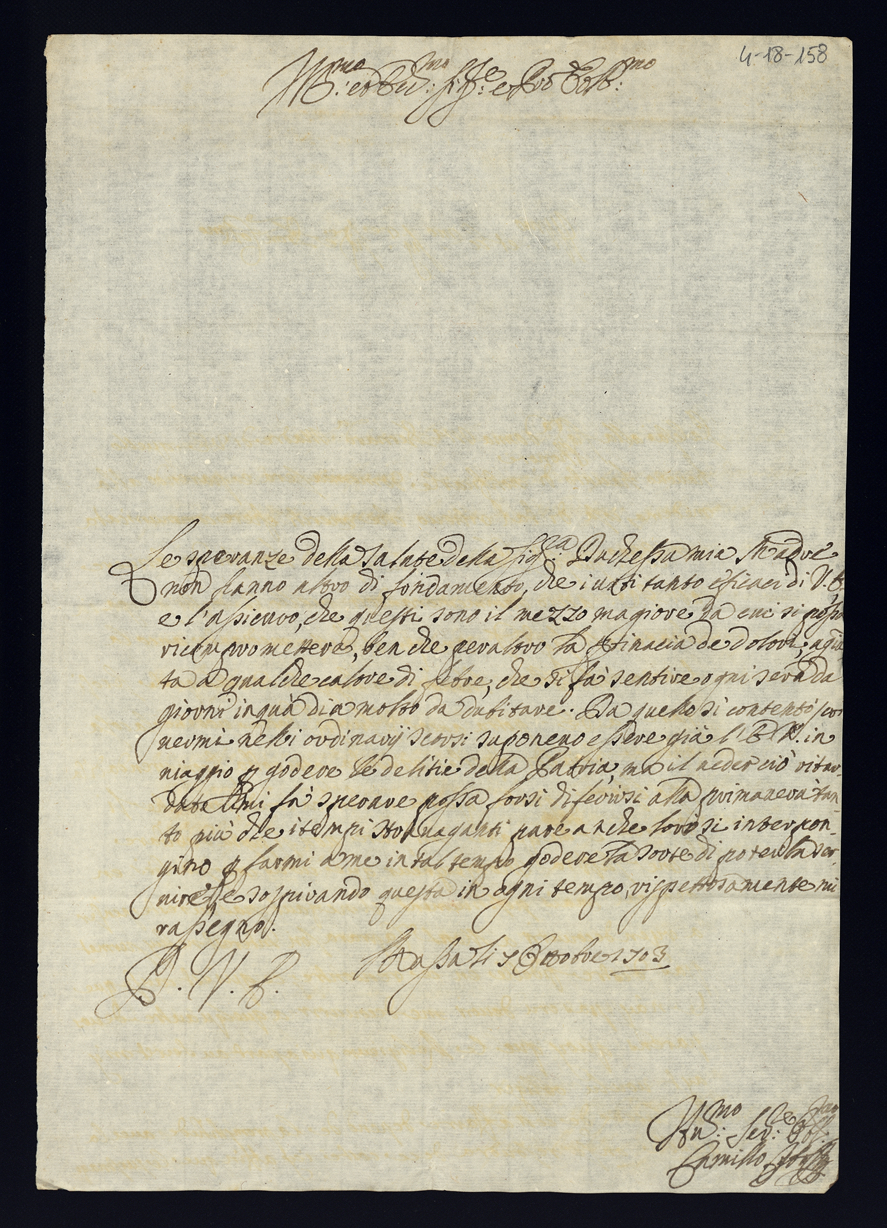 4-18-158
Ill.mo et Ecc.mo Sig.re e Pro Col.mo
Le speranze della salute della Sig.ra Duchessa mia Madre
non hanno altro di fondamento, che i voti tanto efficaci di V. E.
e l'assicuro, che questi sono il mezzo magiore da cui si possa
ricompromettere, ben che per altro la ostinacia de dolori, agiu
ta a qualche calore di febre, che si fà sentire ogni sera da
giorni in quà dia molto da dubitare. Da quello si contentò scri
uermi nelli ordinarij scorsi suponeuo essere già l' E. V. in
uiaggio p godere le delitie della Patria, ma il uederciò ritar,
dare mi fà sperare possa forsi diferirsi alla primauera tan
to più che i tempi strauaganti pare anche loro si interpon,
gino p farmi a me in tal tempo godere la sorte di poterla ser,
uire, e sospirando questa in ogni tempo, rispettosamente mi
rassegno.
D. V. E. Massa li 7 Ottobre 1703
Deu.mo Ser.re
Camillo